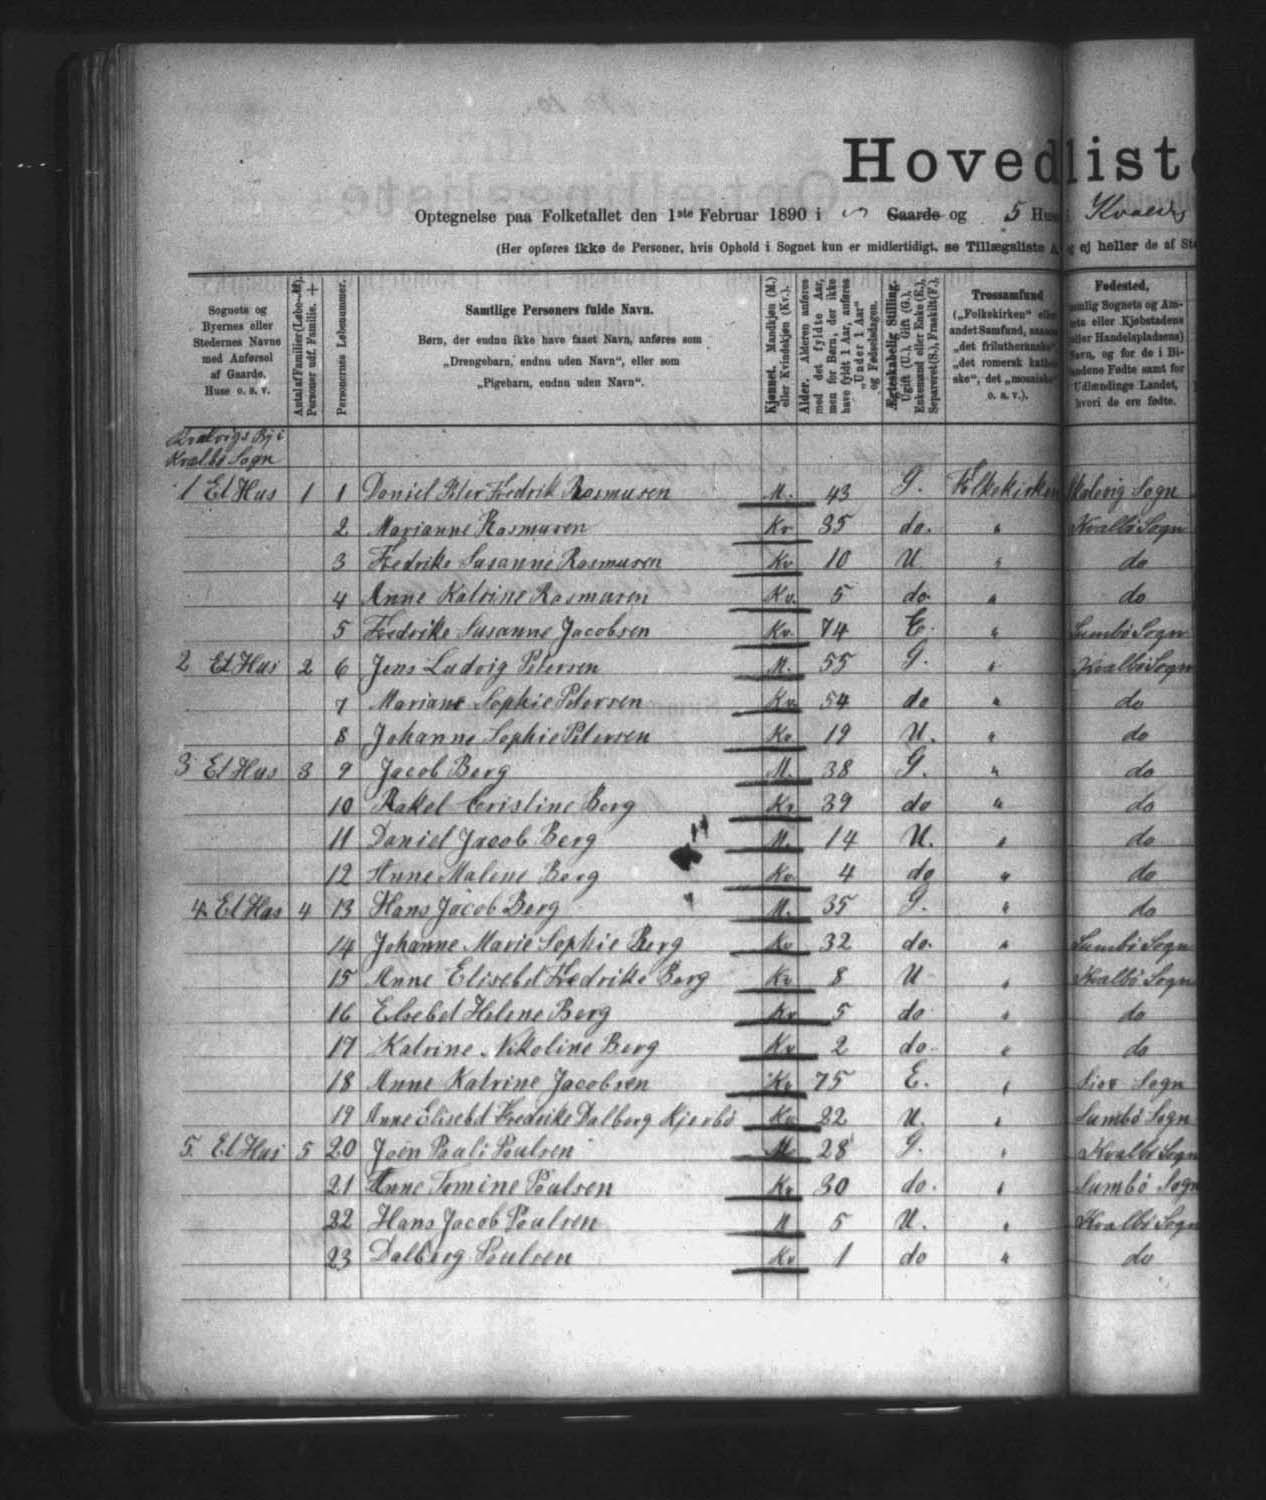 Hovedliste
Optegnelse paa Folketallet den 1ste Februar 1890 i Gaarde og 5 Huse i
(Her opføres ikke de Personer, hvis Ophold i Sognet kun er midlertidigt, se Tillægsliste A, og ej heller de af
Sognets og Byernes eller Stedernes Navne med Anførsel af Gaarde, Huse o. s. v.
Antal af Familier (Løbe-№). Personer udf. Familie. +
Personernes Løbenummer.
Samtlige Personers fulde Navn.
Børn, der endnu ikke have faaet Navn, anføres som
„Drengebarn, endnu uden Navn“, eller som
„Pigebarn, endnu uden Navn“.
Kjønnet. Mandkjøn (M.) eller Kvindekjøn (Kv.).
Alder. Alderen anføres med det fyldte Aar, men for Børn, der ikke have fyldt 1 Aar, anføres „Under 1 Aar“ og Fødselsdagen.
Ægteskabelig Stilling. Ugift (U.), Gift (G.), Enkemand eller Enke (E.), Separeret (S.), Fraskilt (F.).
Trossamfund („Folkekirken“ eller andet Samfund, saasom „det frilutheranske“, „det romersk katholske“, det „mosaiske“ o. s. v.).
Fødested, nemlig Sognets og Amtets eller Kjøbstadens (eller Handelspladsens) Navn, og for de i Bilandene Fødte samt for Udlændinge Landet, hvori de ere fødte.
By i
Kvalbø Sogn
1 Et Hus 1 1 Daniel Peter Fredrik Rasmusen M. 43 G. Folkekirken Sogn
2 Marianne Rasmusen Kv 35 do. " Kvalbø Sogn
3 Fredrike Susanne Rasmusen Kv 10 U " do
4 Anne Katrine Rasmusen Kv. 5 do. " do
5 Fredrike Susanne Jacobsen Kv. 74 E. " Sumbø Sogn
2 Et Hus 2 6 Jens Ludvig Petersen M. 55 G. " Kvalbø Sogn
7 Mariane Sophie Petersen Kv. 54 do " do
8 Johanne Sophie Petersen Kv. 19 U. " do
3 Et Hus 3 9 Jacob Berg M. 38 G. " do
10 Rakel Cristine Berg Kv 39 do " do
11 Daniel Jacob Berg M. 14 U. " do
12 Anne Malene Berg Kv 4 do " do
4. Et Hus 4 13 Hans Jacob Berg M. 35 G. " do
14 Johanne Marie Sophie Berg Kv 32 do. " Sumbø Sogn
15 Anne Elisebet Fredrikke Berg Kv 8 U " Kvalbø Sogn
16 Elsebet Helene Berg Kv 5 do " do
17 Katrine Nikoline Berg Kv 2 do. " do
18 Anne Katrine Jacobsen Kv 75 E. " Sogn
19 Anne Elisebet Fredrikke Dalberg Kjerbø Kv 22 U. " Sumbø Sogn
5. Et Hus 5 20 Joen Pauli Poulsen M. 28 G. " Kvalbø Sogn
21 Anne Tomine Poulsen Kv 30 do. " Sumbø Sogn
22 Hans Jacob Poulsen M 5 U. " Kvalbø Sogn
23 Dalberg Poulsen Kv 1 do " do